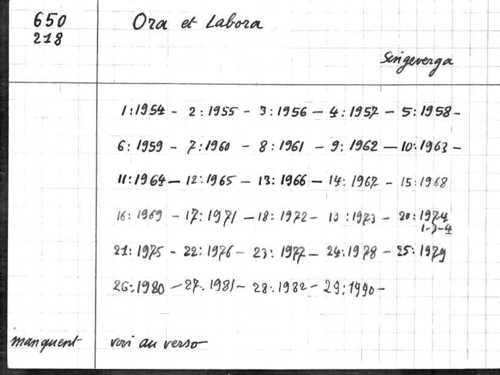 650
218
Ora et Labora
Singeverga
1:1954 - 2:1955 - 3:1956 - 4:1957 - 5:1958 -
6:1959 - 7:1960 - 8:1961 - 9:1962 - 10:1963 -
11:1964 - 12:1965 - 13:1966 - 14:1967 - 15:1968
16:1969 - 17:1971 - 18:1972 - 19:1973 - 20:1974
1-3-4
21:1975 - 22:1976 - 23:1977 - 24:1978 - 25:1979
26:1980 - 27:1981 - 28:1982 - 29:1990 -
manquent
voir au verso